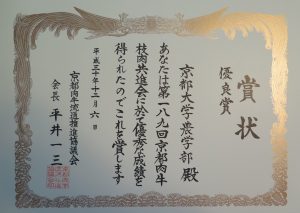 賞状
優良賞
京都大学農学部 殿
あなたは第一八九回京都肉牛
枝肉共進会に於て優秀な成績を
得られたのでこれを賞します
平成三十年十二月六日
京都肉牛流通推進協議会
会長 平井一三